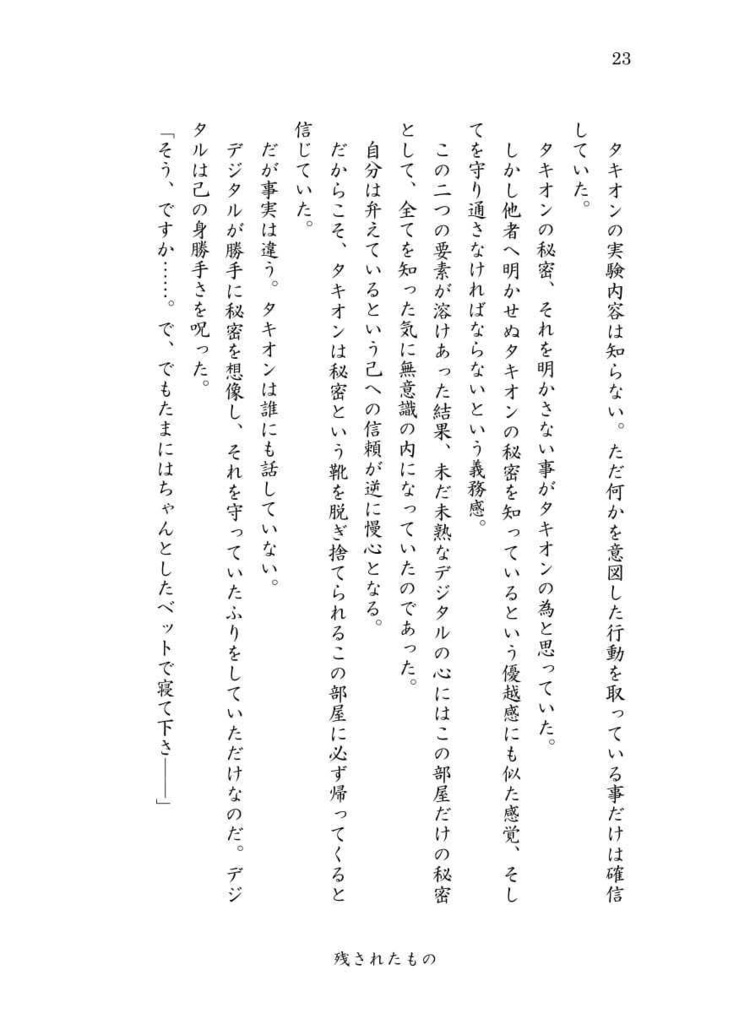 23
タキオンの実験内容は知らない。ただ何かを意図した行動を取っている事だけは確信
していた。
タキオンの秘密、それを明かさない事がタキオンの為と思っていた。
しかし他者へ明かせぬタキオンの秘密を知っているという優越感にも似た感覚、そし
てを守り通さなければならないという義務感。
この二つの要素が溶けあった結果、未だ未熟なデジタルの心にはこの部屋だけの秘密
として、全てを知った気に無意識の内になっていたのであった。
自分は弁えているという己への信頼が逆に慢心となる。
だからこそ、タキオンは秘密という靴を脱ぎ捨てられるこの部屋に必ず帰ってくると
信じていた。
だが事実は違う。タキオンは誰にも話していない。
デジタルが勝手に秘密を想像し、それを守っていたふりをしていただけなのだ。デジ
タルは己の身勝手さを呪った。
「そう、ですか……。で、でもたまにはちゃんとしたベットで寝て下さ――」
残されたもの